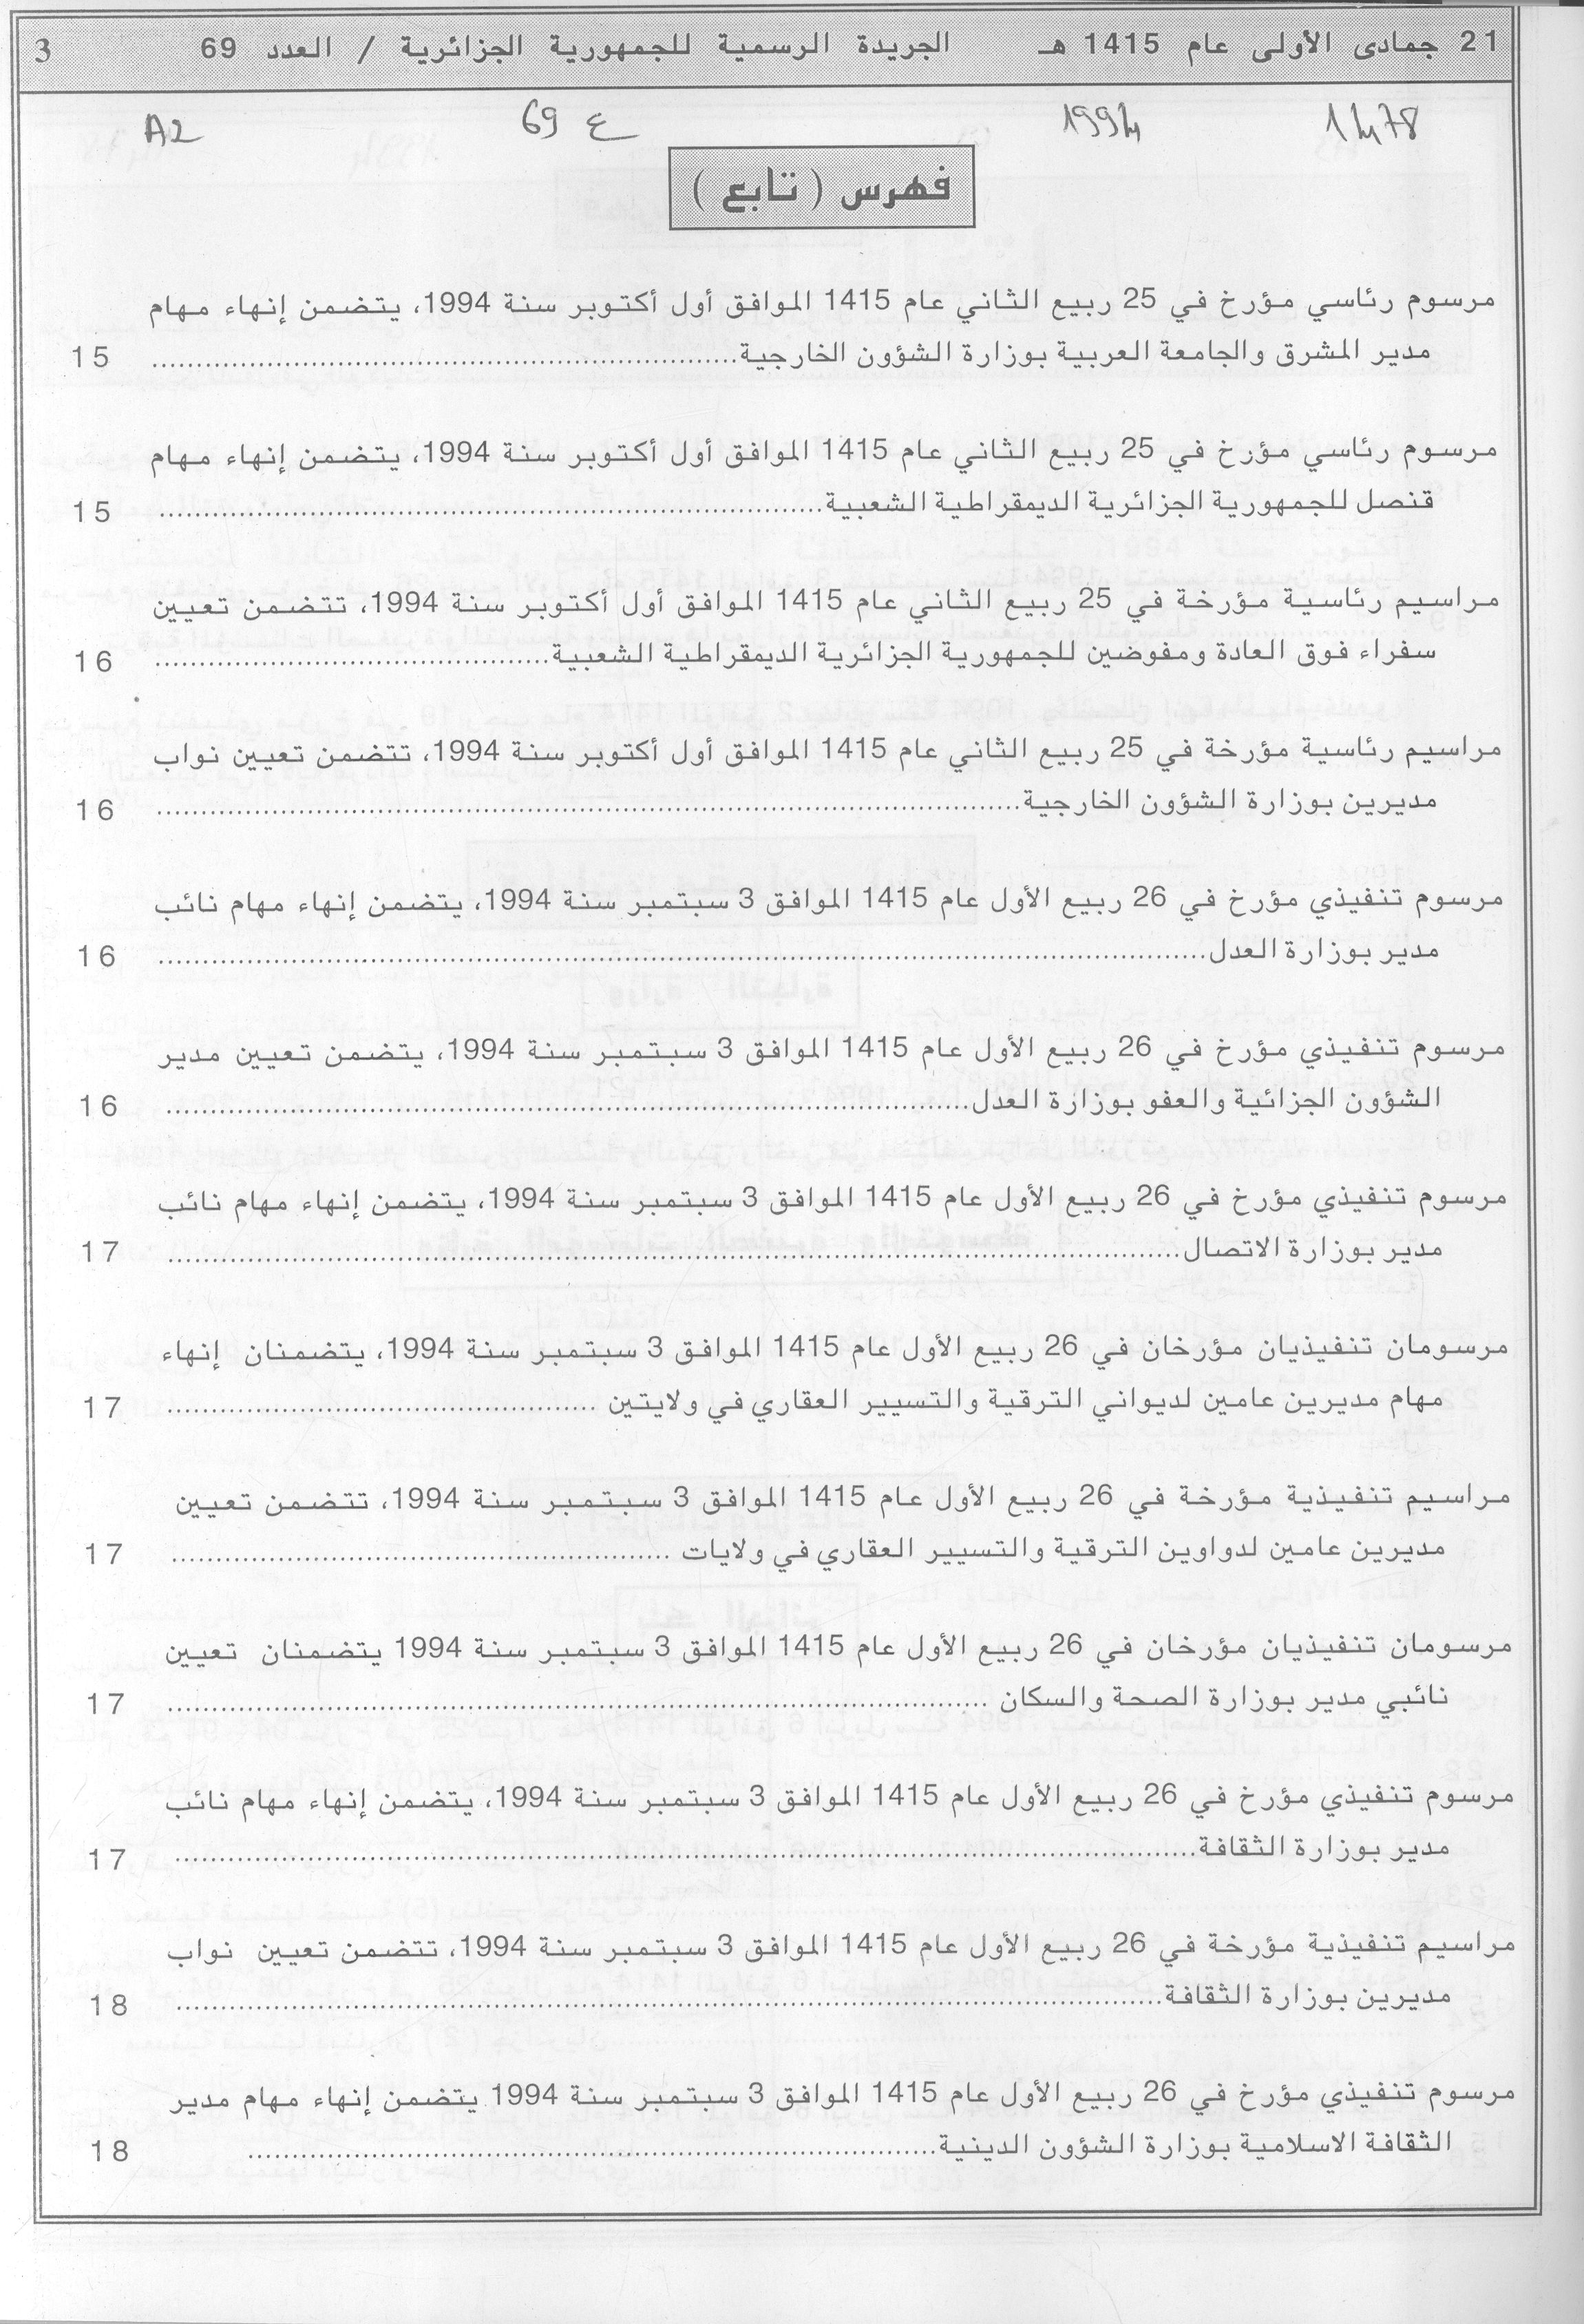 21 جمادى الأولى عام 1415 هـ الجريدة الرسمية للجمهورية الجزائرية / العدد 69 3
1478 1994 ع 69 A2
فهرس ( تابع )
مرسوم رئاسي مؤرخ في 25 ربيع الثاني عام 1415 الموافق أول أكتوبر سنة 1994، يتضمن إنهاء مهام
مدير المشرق والجامعة العربية بوزارة الشؤون الخارجية........................................ 15
مرسوم رئاسي مؤرخ في 25 ربيع الثاني عام 1415 الموافق أول أكتوبر سنة 1994، يتضمن إنهاء مهام
قنصل للجمهورية الجزائرية الديمقراطية الشعبية........................................ 15
مراسيم رئاسية مؤرخة في 25 ربيع الثاني عام 1415 الموافق أول أكتوبر سنة 1994، تتضمن تعيين
سفراء فوق العادة ومفوضين للجمهورية الجزائرية الديمقراطية الشعبية........................................ 16
مراسيم رئاسية مؤرخة في 25 ربيع الثاني عام 1415 الموافق أول أكتوبر سنة 1994، تتضمن تعيين نواب
مديرين بوزارة الشؤون الخارجية........................................ 16
مرسوم تنفيذي مؤرخ في 26 ربيع الأول عام 1415 الموافق 3 سبتمبر سنة 1994، يتضمن إنهاء مهام نائب
مدير بوزارة العدل........................................ 16
مرسوم تنفيذي مؤرخ في 26 ربيع الأول عام 1415 الموافق 3 سبتمبر سنة 1994، يتضمن تعيين مدير
الشؤون الجزائية والعفو بوزارة العدل........................................ 16
مرسوم تنفيذي مؤرخ في 26 ربيع الأول عام 1415 الموافق 3 سبتمبر سنة 1994، يتضمن إنهاء مهام نائب
مدير بوزارة الاتصال........................................ 17
مرسومان تنفيذيان مؤرخان في 26 ربيع الأول عام 1415 الموافق 3 سبتمبر سنة 1994، يتضمنان إنهاء
مهام مديرين عامين لديواني الترقية والتسيير العقاري في ولايتين ........................................ 17
مراسيم تنفيذية مؤرخة في 26 ربيع الأول عام 1415 الموافق 3 سبتمبر سنة 1994، تتضمن تعيين
مديرين عامين لدواوين الترقية والتسيير العقاري في ولايات ........................................ 17
مرسومان تنفيذيان مؤرخان في 26 ربيع الأول عام 1415 الموافق 3 سبتمبر سنة 1994 يتضمنان تعيين
نائبي مدير بوزارة الصحة والسكان ........................................ 17
مرسوم تنفيذي مؤرخ في 26 ربيع الأول عام 1415 الموافق 3 سبتمبر سنة 1994، يتضمن إنهاء مهام نائب
مدير بوزارة الثقافة........................................ 17
مراسيم تنفيذية مؤرخة في 26 ربيع الأول عام 1415 الموافق 3 سبتمبر سنة 1994، تتضمن تعيين نواب
مديرين بوزارة الثقافة........................................ 18
مرسوم تنفيذي مؤرخ في 26 ربيع الأول عام 1415 الموافق 3 سبتمبر سنة 1994 يتضمن إنهاء مهام مدير
الثقافة الاسلامية بوزارة الشؤون الدينية........................................ 18